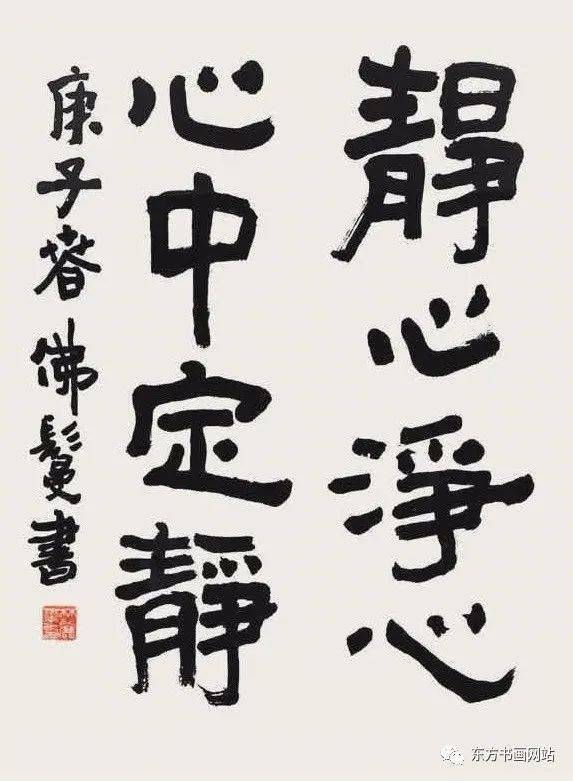 靜心淨心
心中定靜
庚子春佛鬘書
东方书画网站